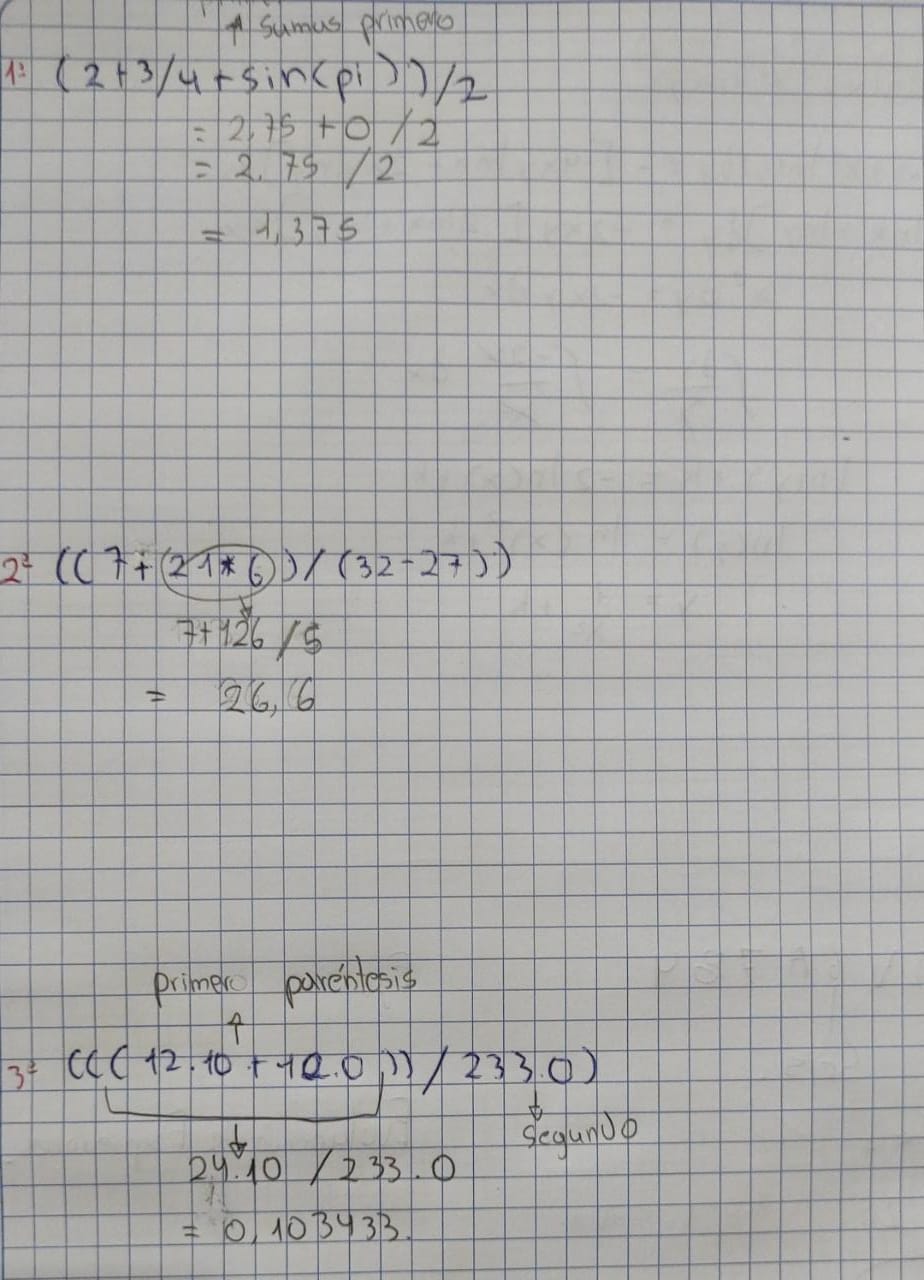 ↑ sumas primero
1º (2+3/4+sin(pi))/2
= 2,75 + 0 /2
= 2.75 /2
= 1,375
2º ((7+(21*6))/(32-27))
7+126 /5
= 26,6
primero paréntesis
3º (((12.10+12.0))/233.0)
segundo
24.10 /233.0
= 0,103433.